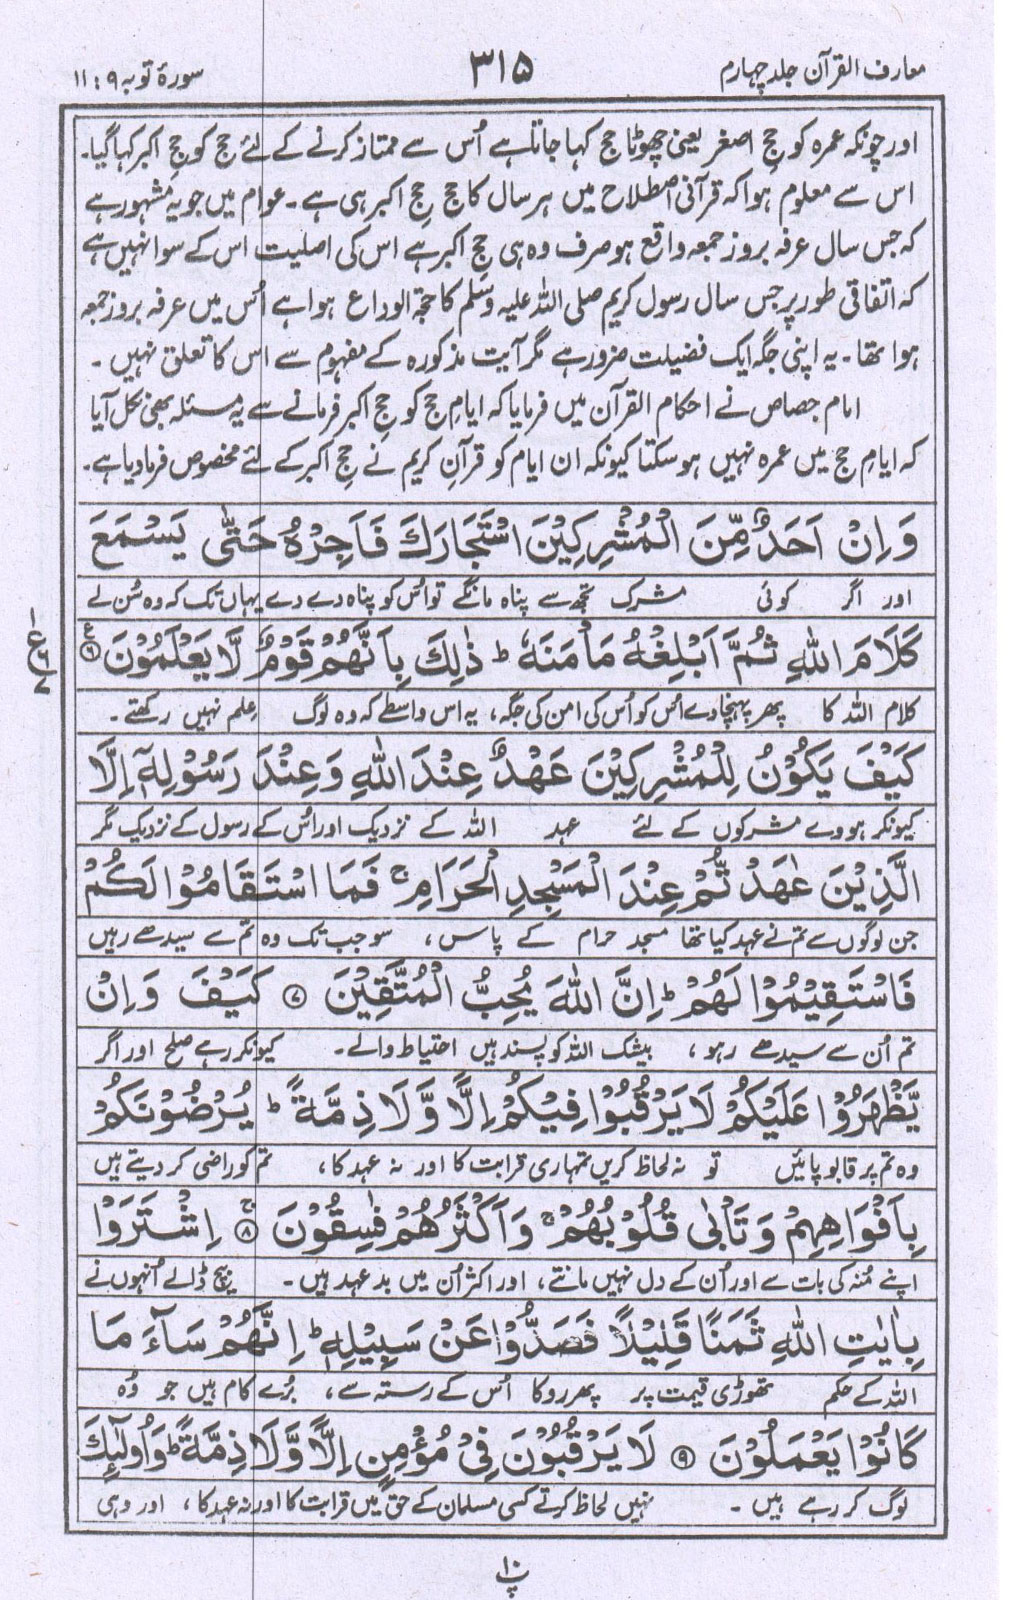 معارف القرآن جلد چہارم
۳۱۵
سورۂ توبہ ۹ : ۱۱
اور چونکہ عمرہ کو حجِ اصغر یعنی چھوٹا حج کہا جاتا ہے اُس سے ممتاز کرنے کے لئے حج کو حجِ اکبر کہا گیا۔
اس سے معلوم ہوا کہ قرآنی اصطلاح میں ہر سال کا حج حجِ اکبر ہی ہے۔ عوام میں جو یہ مشہور ہے
کہ جس سال عرفہ بروز جمعہ واقع ہو صرف وہ ہی حجِ اکبر ہے اس کی اصلیت اس کے سوا نہیں ہے
کہ اتفاقی طور پر جس سال رسول کریم صلی اللہ علیہ وسلم کا حجۃ الوداع ہوا ہے اُس میں عرفہ بروز جمعہ
ہوا تھا۔ یہ اپنی جگہ ایک فضیلت ضرور ہے مگر آیت مذکورہ کے مفہوم سے اس کا تعلق نہیں۔
امام جصاص نے احکام القرآن میں فرمایا کہ ایامِ حج کو حجِ اکبر فرمانے سے یہ مسئلہ بھی نکل آیا
کہ ایامِ حج میں عمرہ نہیں ہو سکتا کیونکہ ان ایام کو قرآنِ کریم نے حجِ اکبر کے لئے مخصوص فرما دیا ہے۔
وَاِنْ اَحَدٌ مِّنَ الْمُشْرِكِيْنَ اسْتَجَارَكَ فَاَجِرْهُ حَتّٰى يَسْمَعَ
اور اگر کوئی مشرک تجھ سے پناہ مانگے تو اُس کو پناہ دے دے یہاں تک کہ وہ سُن لے
كَلَامَ اللّٰهِ ثُمَّ اَبْلِغْهُ مَاْمَنَهٗ ؕ ذٰلِكَ بِاَنَّهُمْ قَوْمٌ لَّا يَعْلَمُوْنَ ۶
کلام اللہ کا پھر پہنچا دے اُس کو اُس کی امن کی جگہ، یہ اس واسطے کہ وہ لوگ علم نہیں رکھتے۔
كَيْفَ يَكُوْنُ لِلْمُشْرِكِيْنَ عَهْدٌ عِنْدَ اللّٰهِ وَعِنْدَ رَسُوْلِهٖٓ اِلَّا
کیونکر ہووے مشرکوں کے لئے عہد اللہ کے نزدیک اور اُس کے رسول کے نزدیک مگر
الَّذِيْنَ عٰهَدْتُّمْ عِنْدَ الْمَسْجِدِ الْحَرَامِ ۚ فَمَا اسْتَقَامُوْا لَكُمْ
جن لوگوں سے تم نے عہد کیا تھا مسجد حرام کے پاس، سو جب تک وہ تم سے سیدھے رہیں
فَاسْتَقِيْمُوْا لَهُمْ ؕ اِنَّ اللّٰهَ يُحِبُّ الْمُتَّقِيْنَ ۷ كَيْفَ وَاِنْ
تم اُن سے سیدھے رہو، بیشک اللہ کو پسند ہیں احتیاط والے۔ کیونکر رہے صلح اور اگر
يَّظْهَرُوْا عَلَيْكُمْ لَا يَرْقُبُوْا فِيْكُمْ اِلًّا وَّلَا ذِمَّةً ؕ يُرْضُوْنَكُمْ
وہ تم پر قابو پائیں تو نہ لحاظ کریں تمہاری قرابت کا اور نہ عہد کا، تم کو راضی کر دیتے ہیں
بِاَفْوَاهِهِمْ وَتَاْبٰى قُلُوْبُهُمْ ۚ وَاَكْثَرُهُمْ فٰسِقُوْنَ ۸ اِشْتَرَوْا
اپنے مُنہ کی بات سے اور اُن کے دل نہیں مانتے، اور اکثر اُن میں بدعہد ہیں۔ بیچ ڈالے اُنہوں نے
بِاٰيٰتِ اللّٰهِ ثَمَنًا قَلِيْلًا فَصَدُّوْا عَنْ سَبِيْلِهٖ ؕ اِنَّهُمْ سَآءَ مَا
اللہ کے حکم تھوڑی قیمت پر پھر روکا اُس کے رستہ سے، بُرے کام ہیں جو وُہ
كَانُوْا يَعْمَلُوْنَ ۹ لَا يَرْقُبُوْنَ فِيْ مُؤْمِنٍ اِلًّا وَّلَا ذِمَّةً ؕ وَاُولٰٓئِكَ
لوگ کر رہے ہیں۔ نہیں لحاظ کرتے کسی مسلمان کے حق میں قرابت کا اور نہ عہد کا، اور وہی